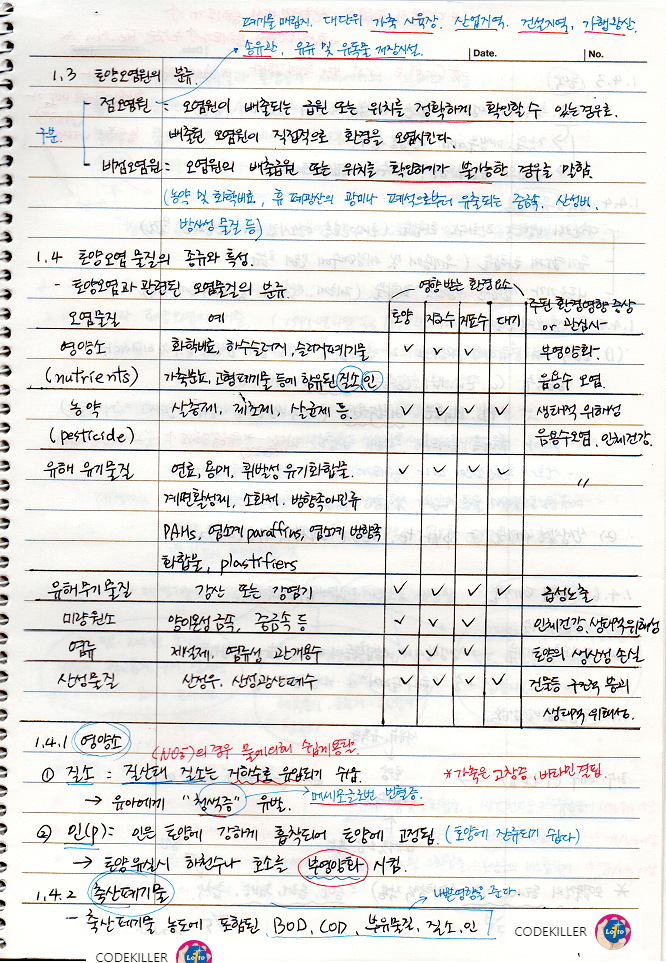 폐기물 매립지. 대단위 가축 사육장. 산업지역. 건설지역, 가행광산.
송유관, 유류 및 유독물 저장시설.
Date.
No.
1.3 토양오염원의 분류.
구분.
점오염원 : 오염원이 배출되는 급원 또는 위치를 정확하게 확인할 수 있는 경우로.
배출된 오염원이 직접적으로 환경을 오염시킨다.
비점오염원 : 오염원의 배출급원 또는 위치를 확인하기가 불가능한 경우를 말함.
(농약 및 화학비료, 휴 폐광산의 광미나 폐석으로부터 유출되는 중금속, 산성비,
방사성 물질 등)
1.4 토양오염 물질의 종류와 특성.
- 토양오염과 관련된 오염물질의 분류.
영향 받는 환경요소
오염물질 예 토양 지하수 지표수 대기 주된 환경영향 증상
or 관심사
영양소 화학비료, 하수슬러지, 슬러지폐기물 ✓ ✓ 부영양화.
(nutrients) 가축분뇨, 고형폐기물 등에 함유된 질소, 인 음용수 오염.
농약 살충제, 제초제, 살균제 등. ✓ ✓ ✓ ✓ 생태적 위해성
(pesticide) 음용수오염, 인체건강.
유해 유기물질 연료, 용매, 휘발성 유기화합물. ✓ ✓ ✓ ✓ 〃
계면활성제, 소화제, 방향족아민류
PAHs, 염소계 paraffins, 염소계 방향족
화합물, plastifiers
유해무기물질 강산 또는 강염기 ✓ ✓ ✓ ✓ 급성노출
미량원소 양이온성 금속, 중금속 등 ✓ ✓ ✓ 인체건강, 생태적위해성
염류 제설제, 염류성 관개용수 ✓ ✓ ✓ 토양의 생산성 손실
산성물질 산성우, 산성광산폐수 ✓ ✓ ✓ ✓ 건물등 구조적 붕괴
생태적 위해성.
1.4.1 영양소
(NO₃⁻)의 경우 물에 의해 쉽게 용탈.
① 질소 : 질산태 질소는 지하수로 유입되기 쉬움.
*가축은 고창증, 비타민 결핍
→ 유아에게 "청색증" 유발.
메세모글로빈 빈혈증.
② 인(P) : 인은 토양에 강하게 흡착되어 토양에 고정됨. (토양에 잔류되기 쉽다)
→ 토양유실시 하천수나 호소를 부영양화 시킴.
1.4.2 축산폐기물
나쁜영향을 준다.
- 축산폐기물 농도에 포함된, BOD, COD, 부유물질, 질소, 인
CODEKILLER
Lotto
CODEKILLER
Lotto